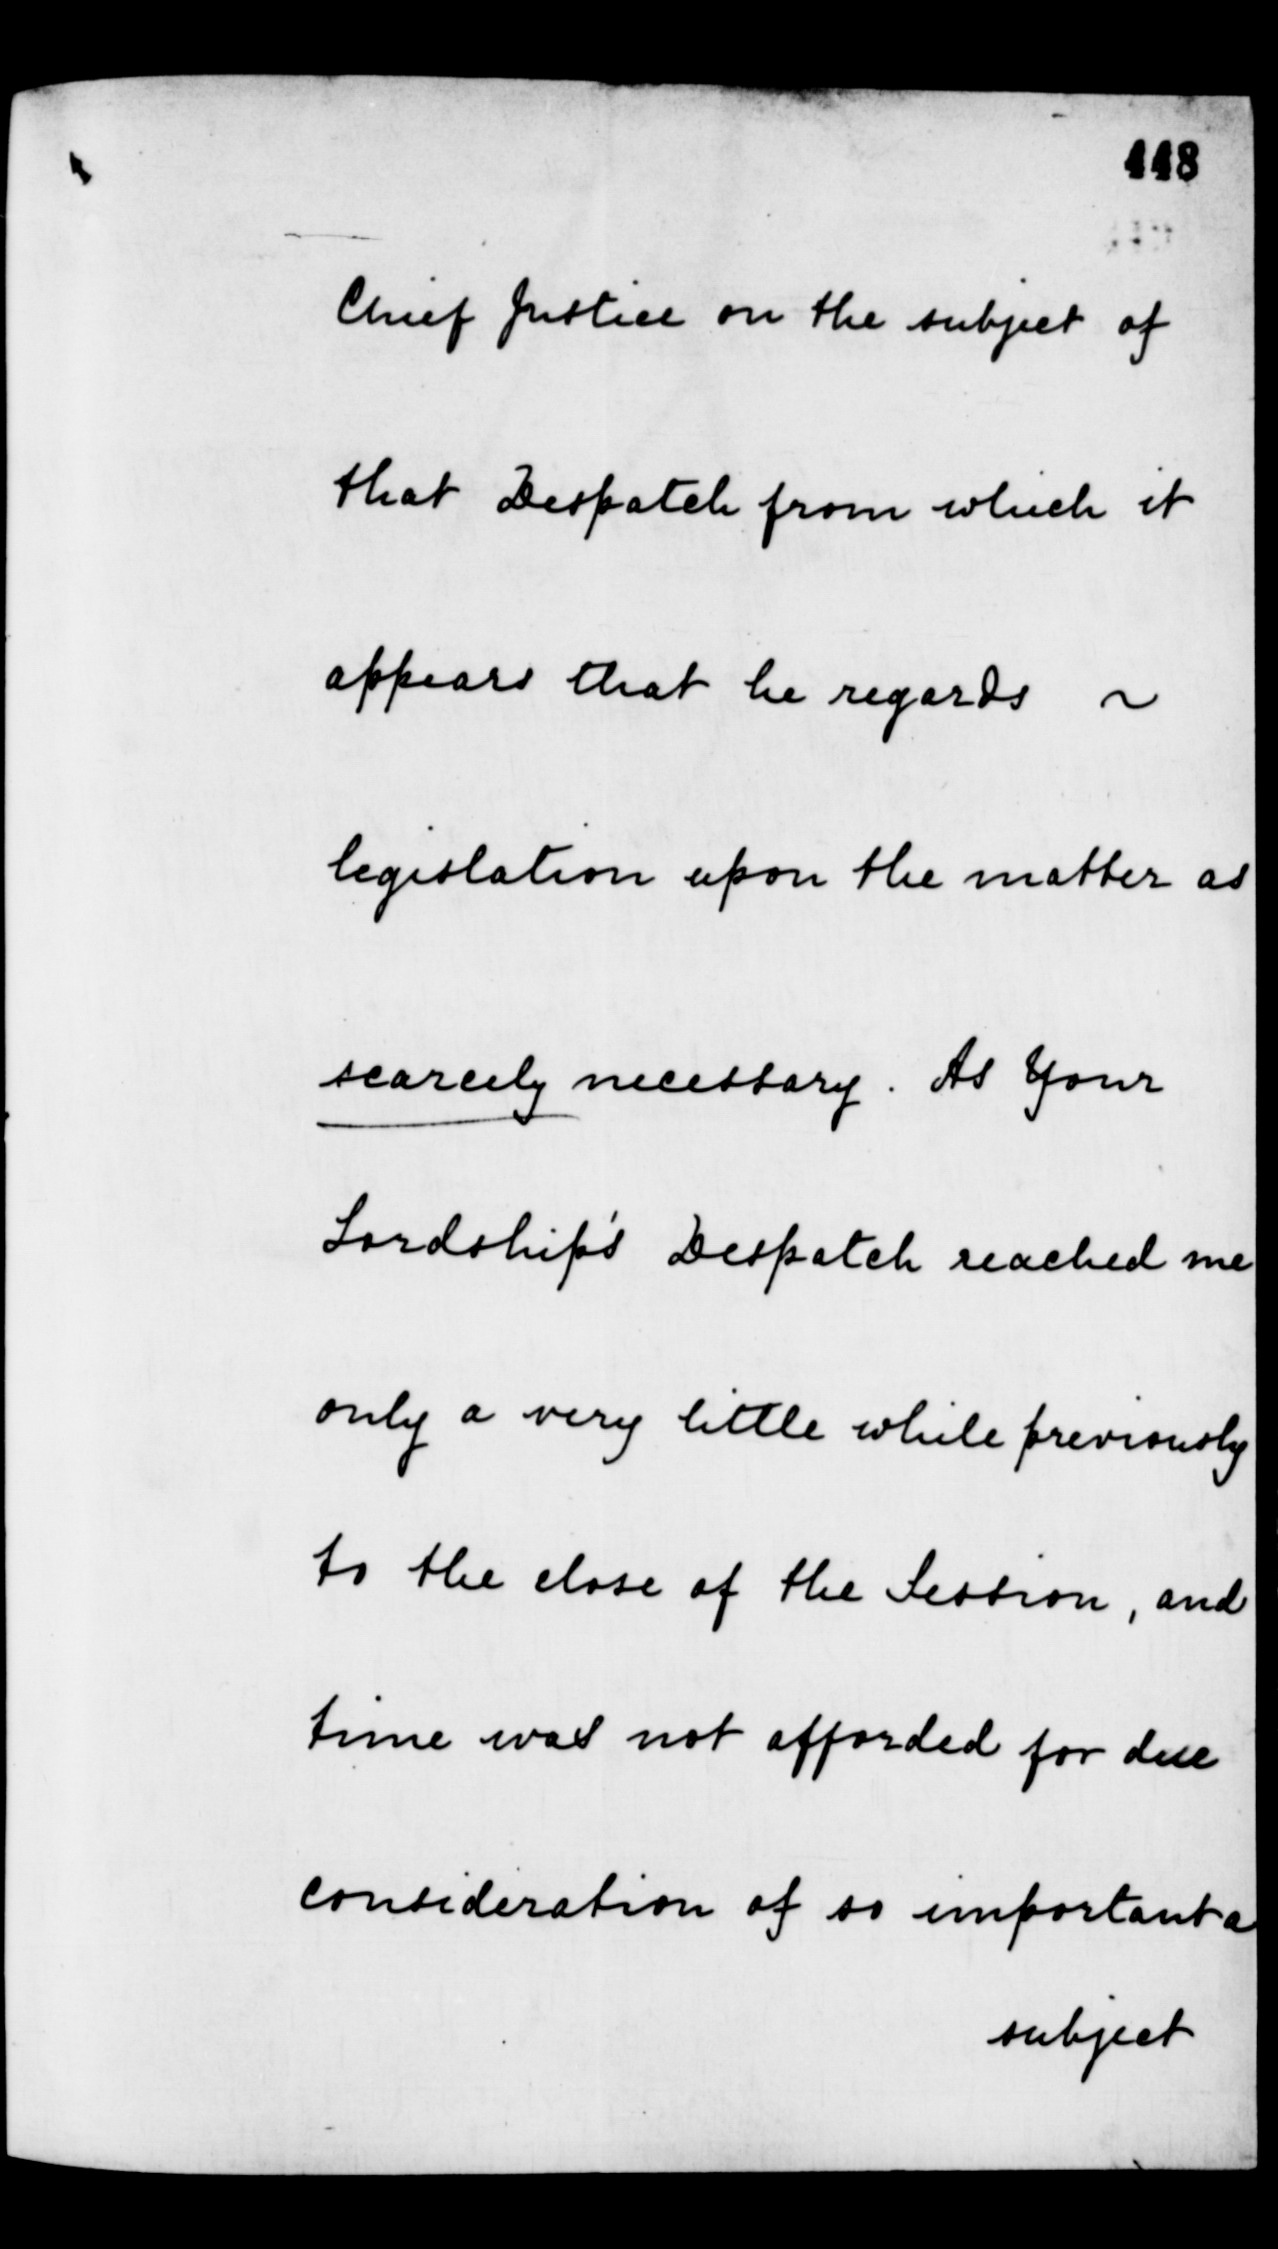 448
Chief Justice on the subject of
that Despatch from which it
appears that he regards ~
legislation upon the matter as
scarcely necessary. As Your
Lordship's Despatch reached me
only a very little while previously
to the close of the Session, and
time was not afforded for due
consideration of so important a
subject